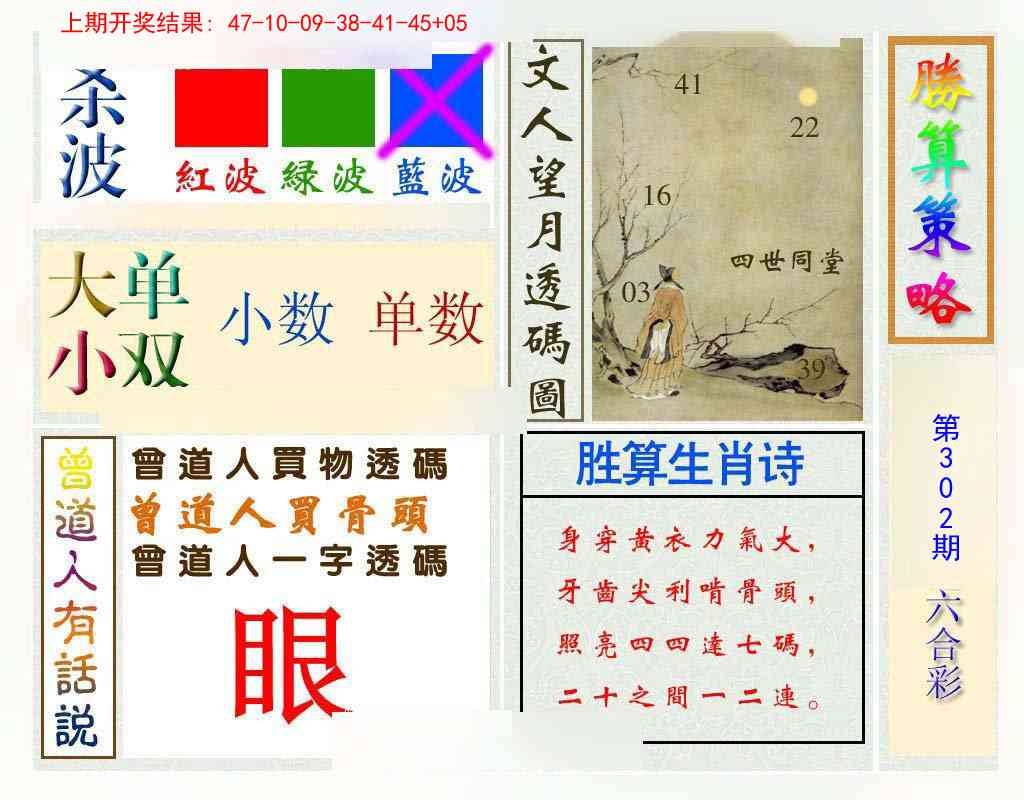 上期开奖结果: 47-10-09-38-41-45+05
杀波
紅波
緑波
藍波
大单
小双
小数
单数
文人望月透碼圖
41
22
16
四世同堂
03
39
勝算策略
第302期
六合彩
曾道人有話説
曾道人買物透碼
曾道人買骨頭
曾道人一字透碼
眼
胜算生肖诗
身穿黄衣力氣大，
牙齒尖利啃骨頭，
照亮四四達七碼，
二十之間一二連。